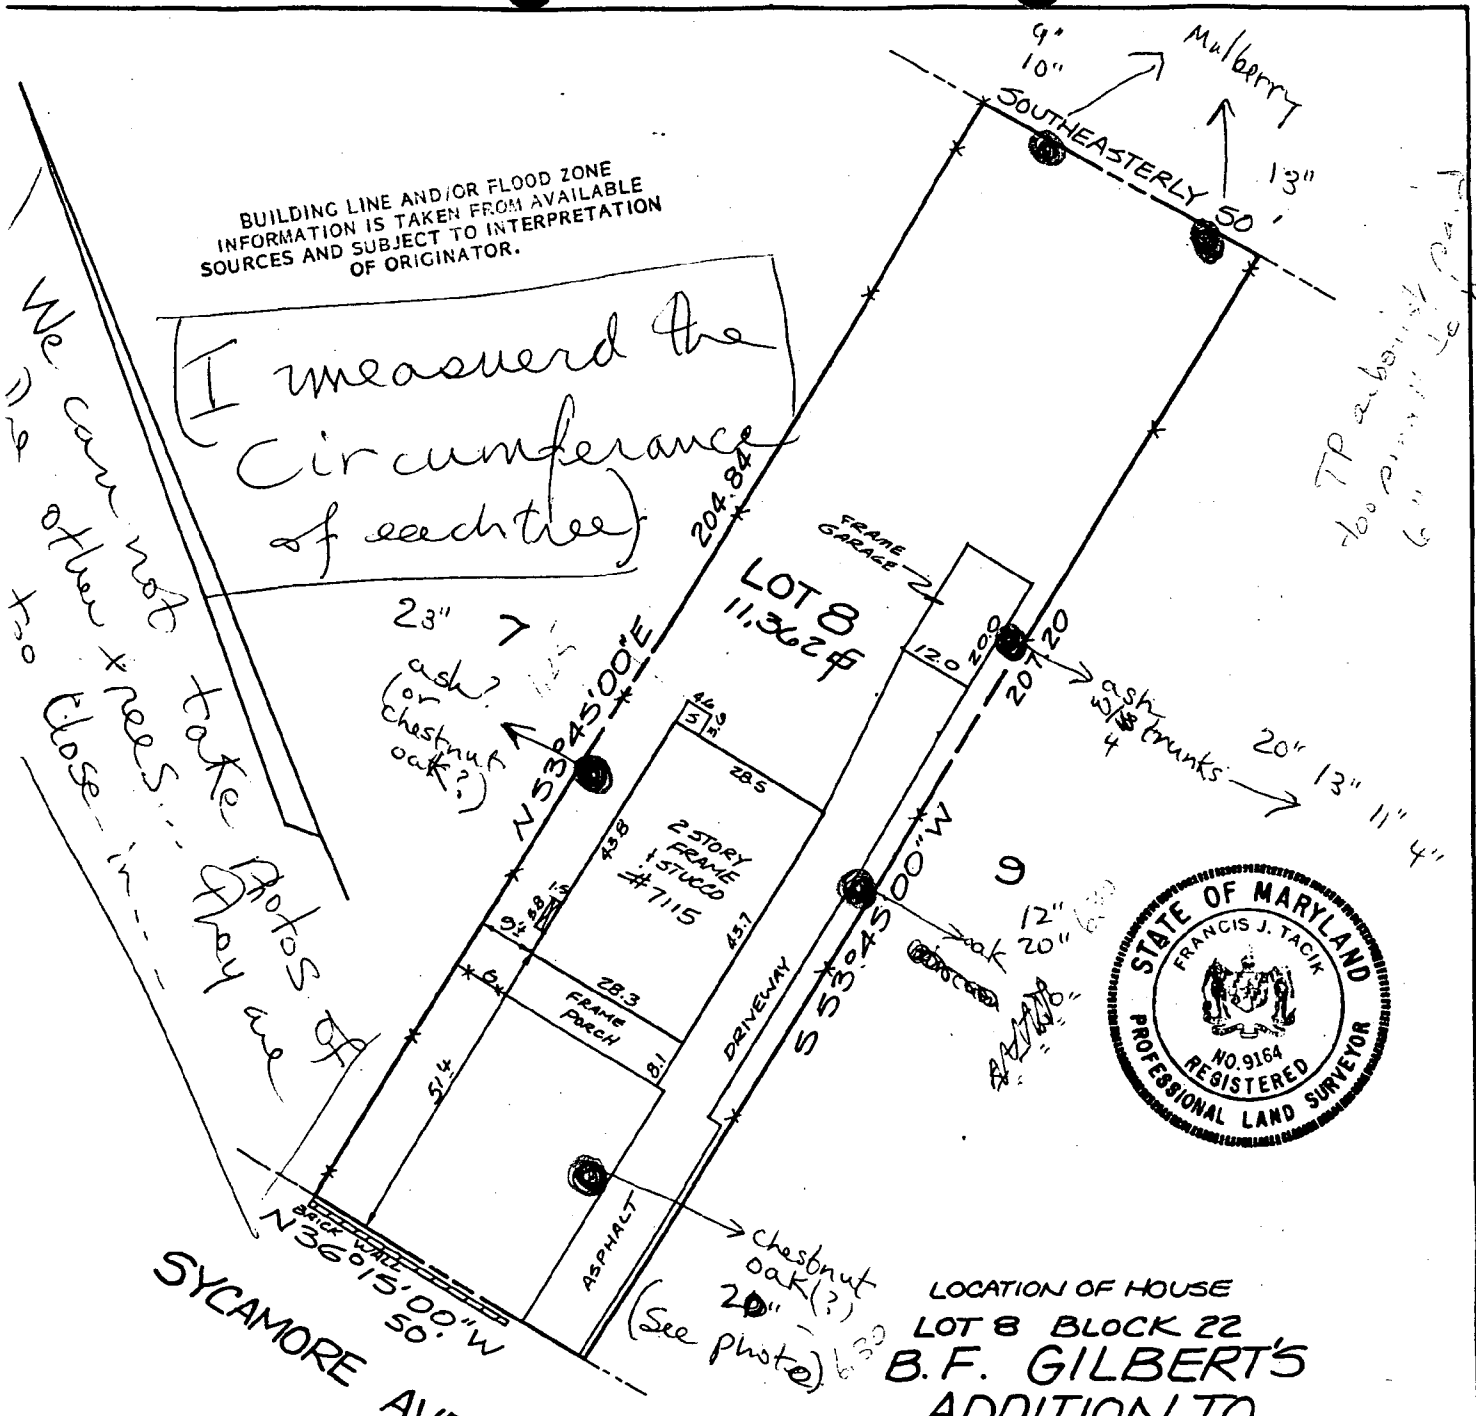 9"
10"
Mulberry
SOUTHEASTERLY 50'
13"
BUILDING LINE AND/OR FLOOD ZONE
INFORMATION IS TAKEN FROM AVAILABLE
SOURCES AND SUBJECT TO INTERPRETATION
OF ORIGINATOR.
(I measuerd the
Circumferance
of each tree)
We can not take Photos of
the other trees.. They are
too close-in---
TP arborist
too
6"
204.84
N 53°45'00"E
LOT 8
11,362
FRAME
GARAGE
12.0
20.0
207.20
S 53°45'00"W
23"
7
ash?
(or
chestnut
oak?)
ash
w/
4 trunks
20" 13" 11"
4"
4.6
5
3.6
28.5
2 STORY
FRAME
& STUCCO
#7115
43.8
43.7
1.5
5.8
9
12"
oak 20"
28.3
FRAME
PORCH
8.1
51.4
DRIVEWAY
ASPHALT
STATE OF MARYLAND
FRANCIS J. TACIK
NO. 9164
REGISTERED
PROFESSIONAL LAND SURVEYOR
BRICK WALL
N 36°15'00"W
50'
SYCAMORE
chestnut
oak(?)
20"
(See photo)
6.30
LOCATION OF HOUSE
LOT 8 BLOCK 22
B.F. GILBERT'S
ADDITION TO